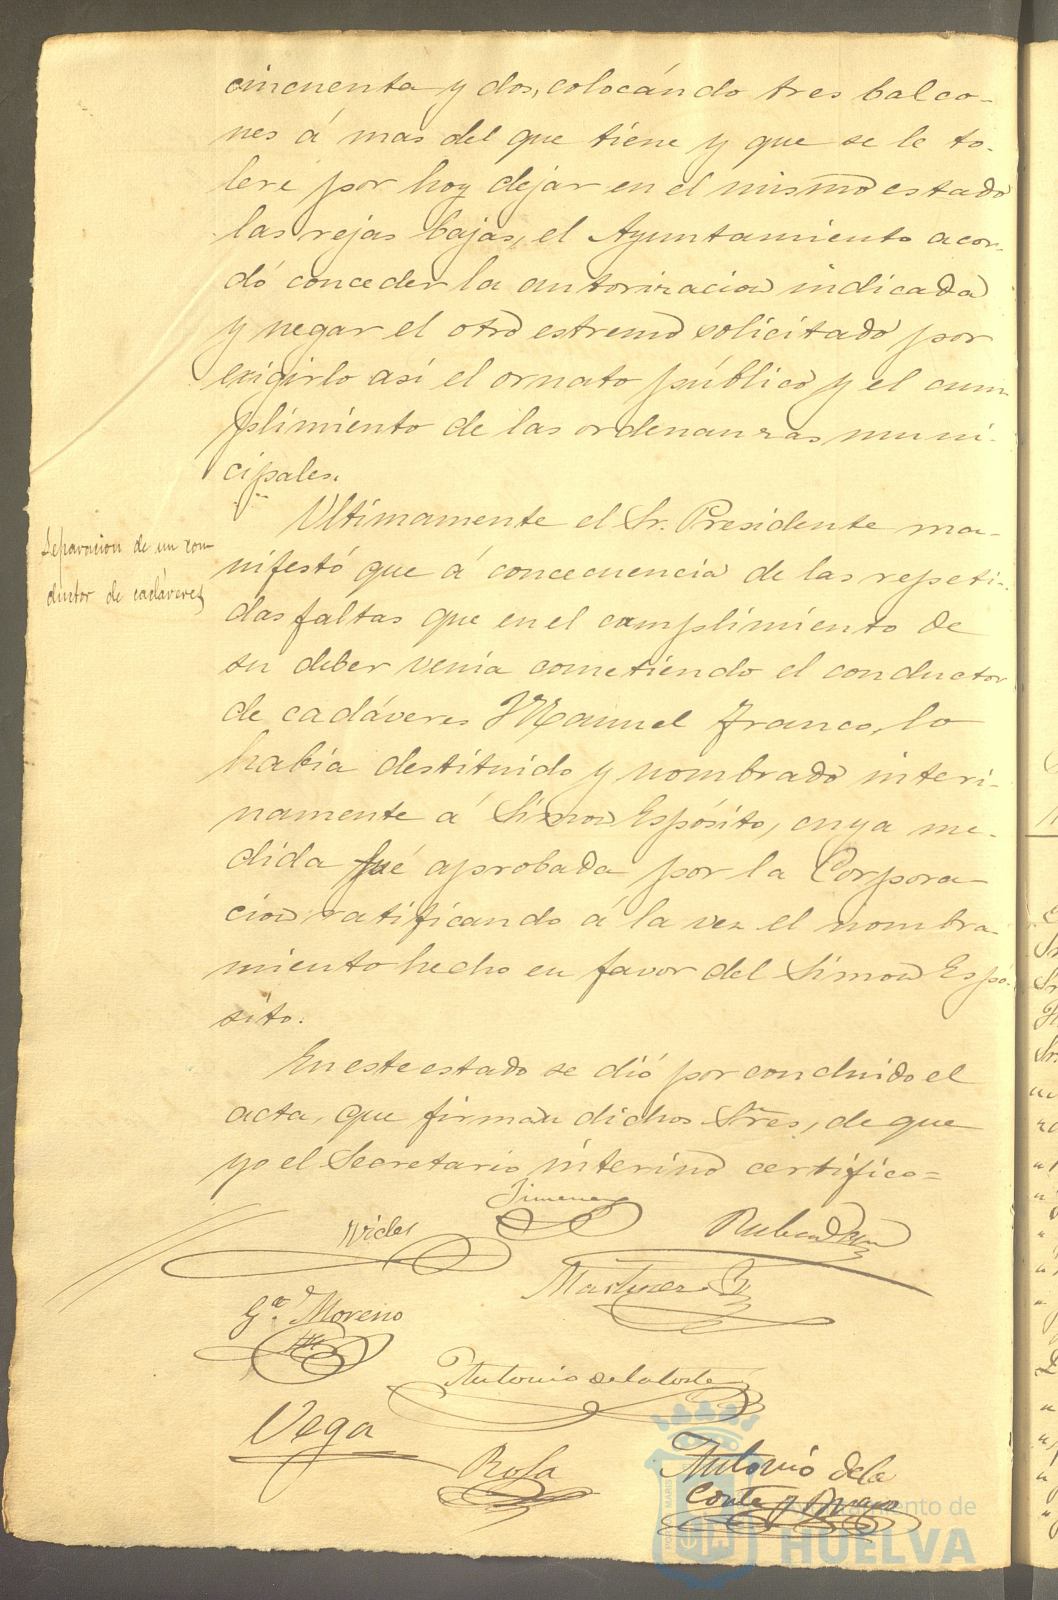 cincuenta y dos, colocándo tres balco-
nes á mas del que tiene y que se le to-
lere por hoy dejar en el mismo estado
las rejas bajas, el Ayuntamiento acor-
dó conceder la autorizacion indicada
y negar el otro estremo solicitado por
exigirlo asi el ornato público y el cum
plimiento de las ordenanzas muni-
cipales.
Separacion de un con-
ductor de cadáveres
Ultimamente el Sr. Presidente ma-
nifestó que á concecuencia de las repeti-
das faltas que en el cumplimiento de
su deber venia cometiendo el conductor
de cadáveres Manuel Franco, lo
habia destituido y nombrado interi-
namente á Simon Espósito, cuya me-
dida fué aprobada por la Corpora-
cion ratificando á la vez el nombra-
miento hecho en favor del Simon Espó-
sito.
En este estado se dió por concluido el
acta, que firman dichos Sres, de que
yo el Secretario interino certifico=
Jimenez
Vides
Martinez
Ga. Moreno
Antonio de la Corte
Vega
Rosa
Antonio de la
Corte y Bravo
Ayuntamiento de
HUELVA